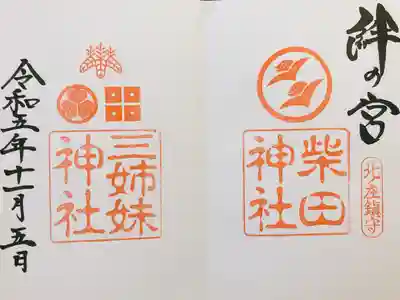 絆の宮
北庄鎮守
柴田
神社
三姉妹
神社
令和五年十一月五日